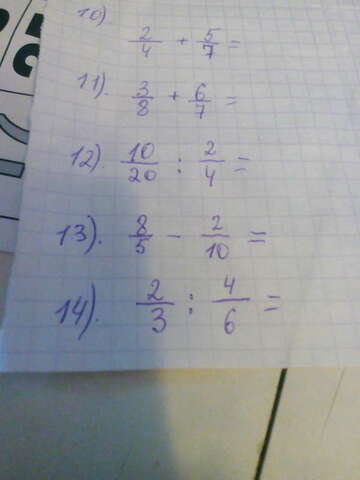 10). 2/4 + 5/7 =
11). 3/8 + 6/7 =
12). 10/20 : 2/4 =
13). 8/5 - 2/10 =
14). 2/3 : 4/6 =